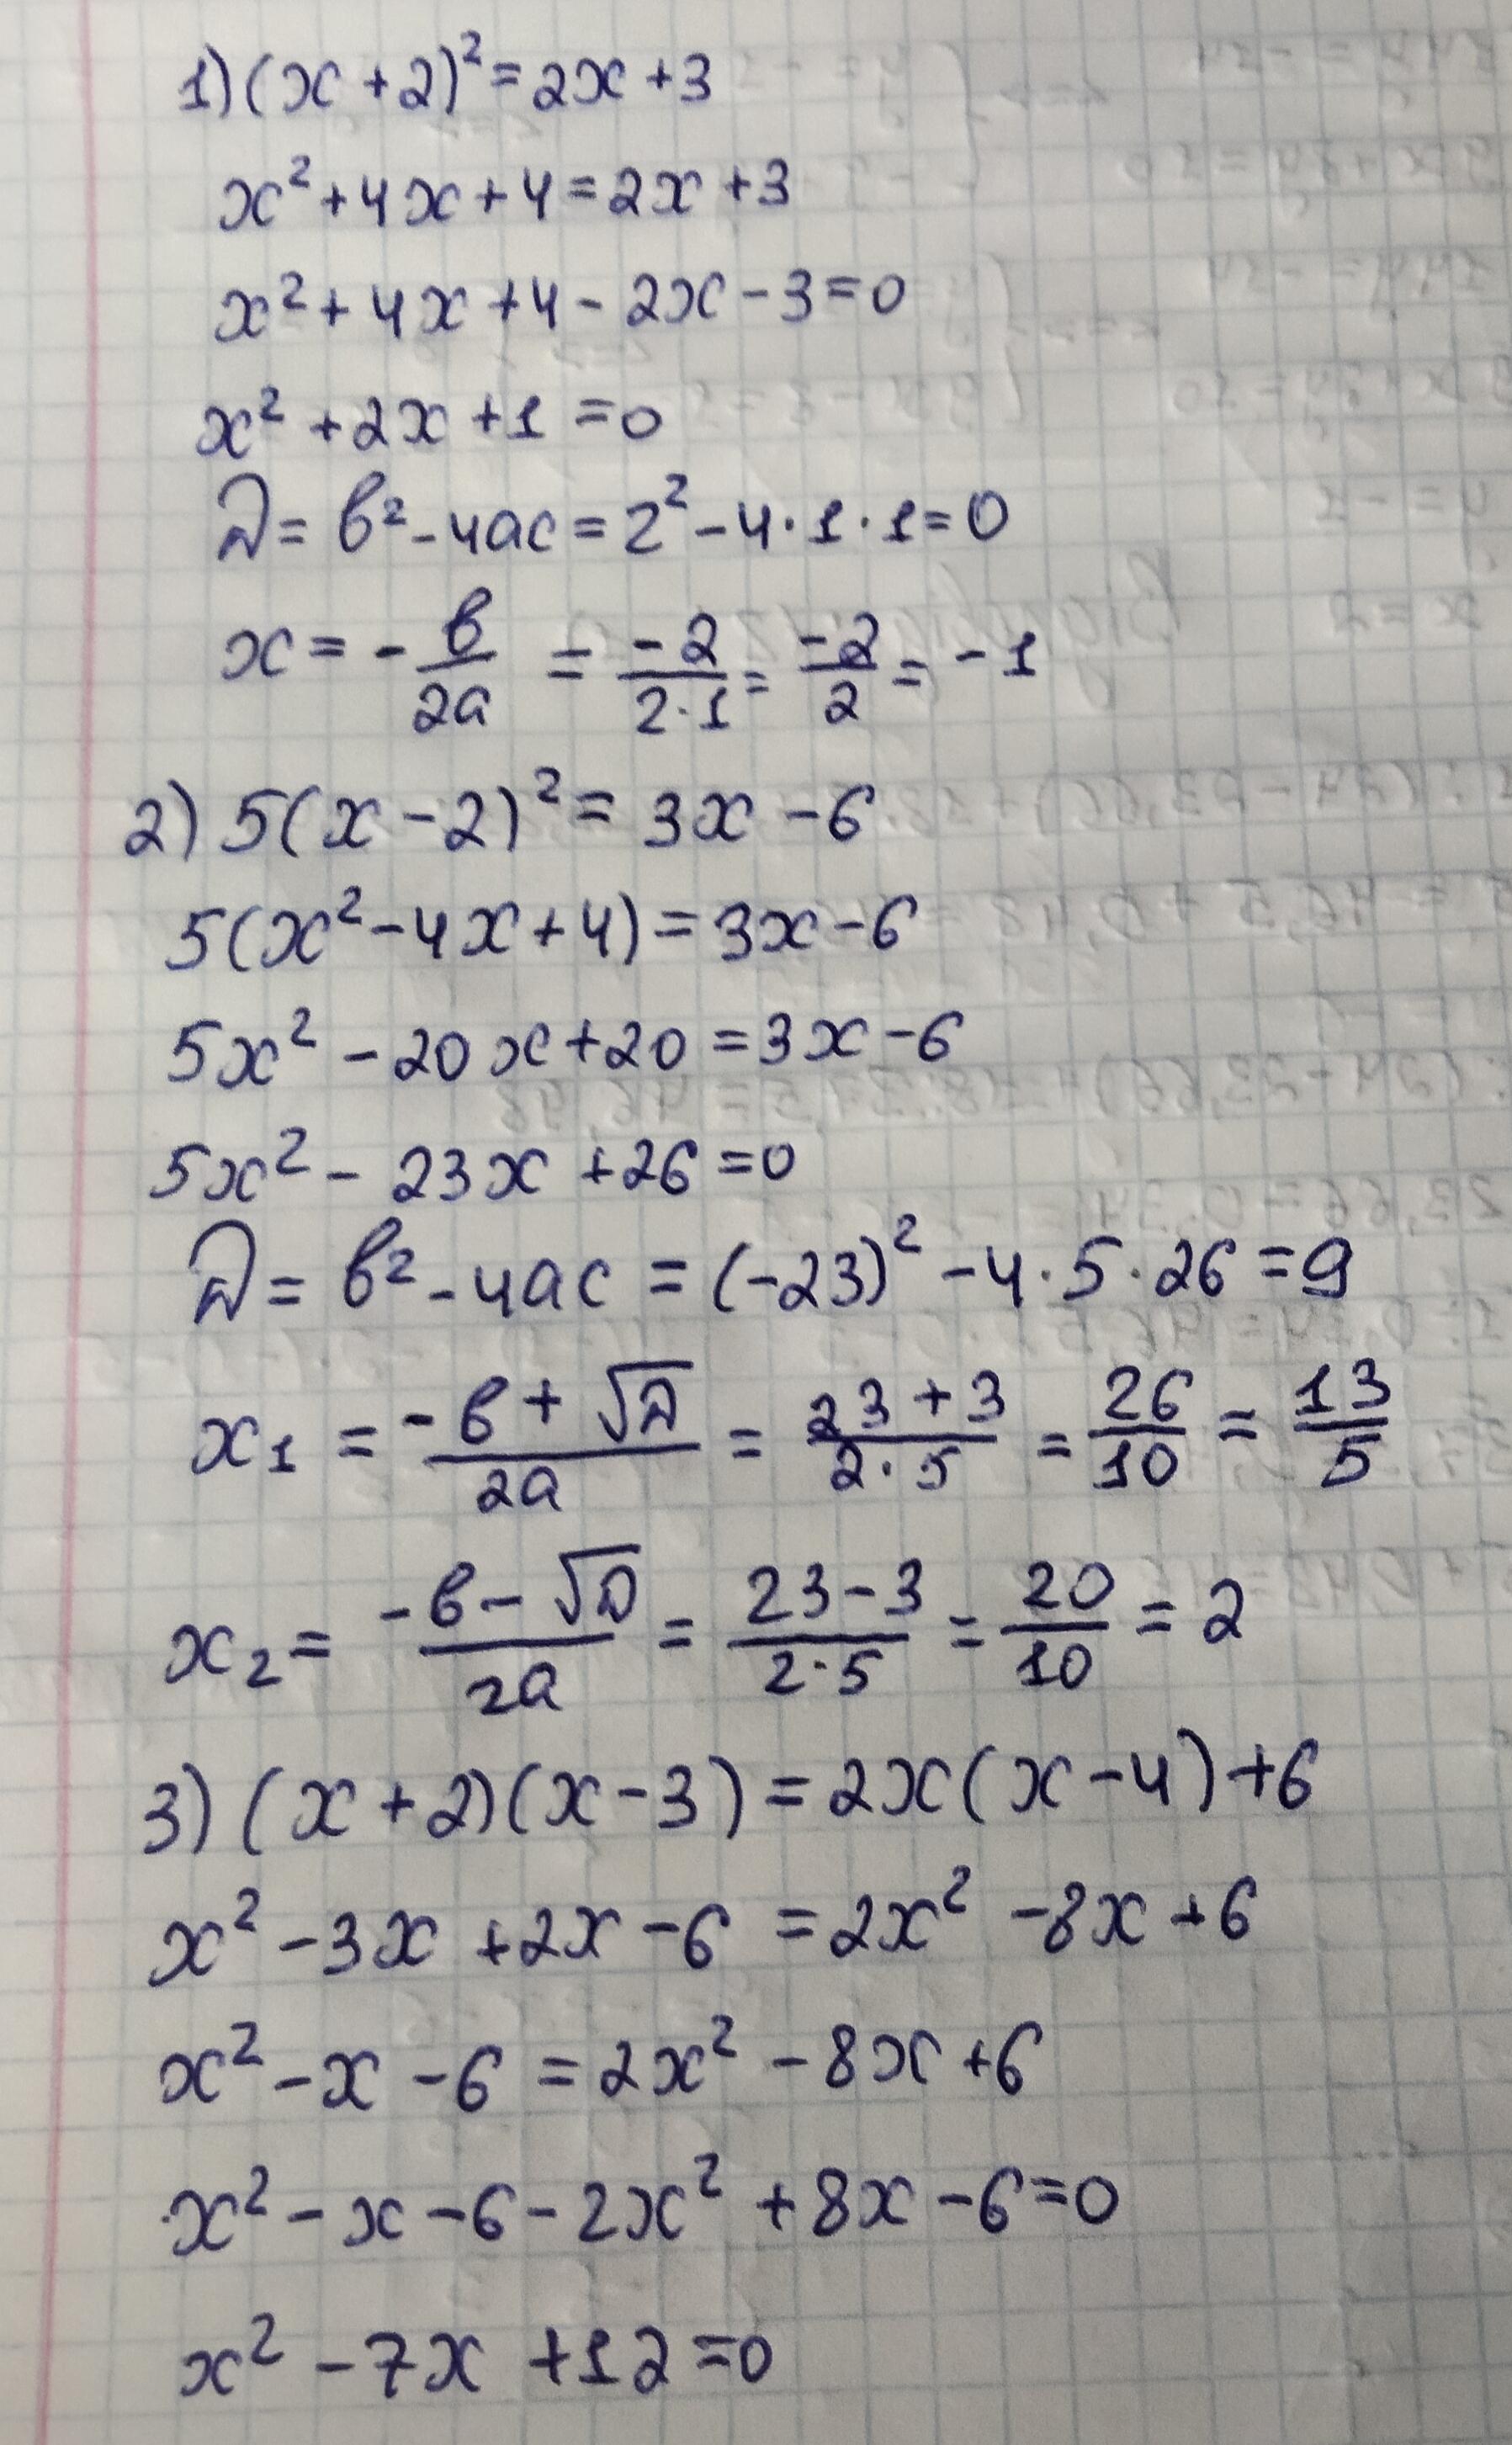 1) (x + 2)² = 2x + 3
x² + 4x + 4 = 2x + 3
x² + 4x + 4 - 2x - 3 = 0
x² + 2x + 1 = 0
D = b² - 4ac = 2² - 4 · 1 · 1 = 0
x = - b/2a = -2/2·1 = -2/2 = -1
2) 5(x - 2)² = 3x - 6
5(x² - 4x + 4) = 3x - 6
5x² - 20x + 20 = 3x - 6
5x² - 23x + 26 = 0
D = b² - 4ac = (-23)² - 4 · 5 · 26 = 9
x₁ = -b + √D/2a = 23 + 3/2·5 = 26/10 = 13/5
x₂ = -b - √D/2a = 23 - 3/2·5 = 20/10 = 2
3) (x + 2)(x - 3) = 2x(x - 4) + 6
x² - 3x + 2x - 6 = 2x² - 8x + 6
x² - x - 6 = 2x² - 8x + 6
x² - x - 6 - 2x² + 8x - 6 = 0
x² - 7x + 12 = 0